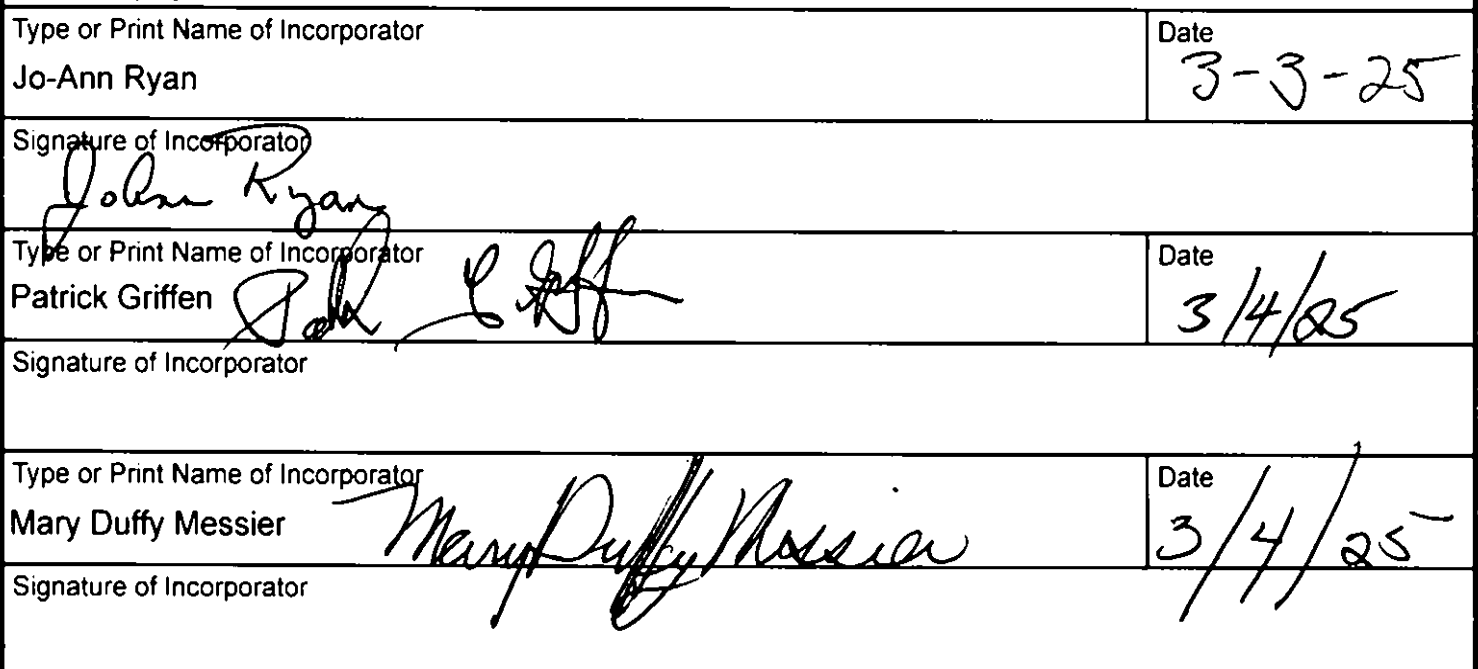 Type or Print Name of Incorporator Date
Jo-Ann Ryan 3-3-25
Signature of Incorporator
JoAnn Ryan
Type or Print Name of Incorporator Date
Patrick Griffen 3/4/25
Signature of Incorporator
Type or Print Name of Incorporator Date
Mary Duffy Messier Mary Duffy Messier 3/4/25
Signature of Incorporator